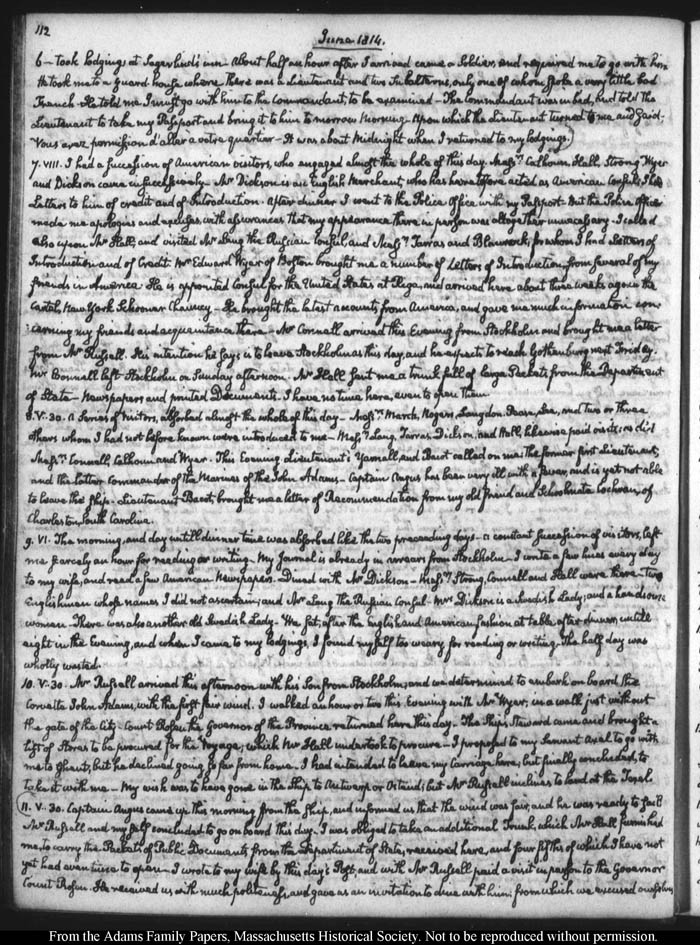 112
June 1814.
6 — took lodgings at Segerlind's inn — About half an hour after I arrived came a Soldier, and required me to go with him
He took me to a guard-house where there was a Lieutenant and two Subalterns, only one of whom spoke a very little bad
French — He told me I must go with him to the Commandant, to be examined — The Commandant was in bed, had told the
Lieutenant to take my Passport and bring it to him to morrow morning — Upon which the Lieutenant turned to me and said —
"Vous avez permission d'aller a votre quartier — It was about Midnight when I returned to my lodgings.
7. VIII. I had a succession of American visitors, who engaged almost the whole of this day. Messrs. Calhoun, Hall, Strong, Wyer
and Dickson came in successively — Mr Dickson is an English Merchant, who has heretofore acted as American Consul, I had
Letters to him of credit and of Introduction. After dinner I went to the Police Office with my Passport. But the Police Officer
made me apologies and excuses, with assurances that my appearance there in person was altogether unnecessary. I called
also upon Mr Hall, and visited Mr Lang the Russian Consul, and Messrs. Tarras and for whom I had Letters of
Introduction and of Credit. Mr Edward Wyer of Boston brought me a number of Letters of Introduction, from several of my
friends in America. He is appointed Consul for the United States at Riga, and arrived here about three weeks ago in the
Cartel, New York Schooner Chauncy — He brought the latest accounts from America, and gave me much information con-
cerning my friends and acquaintance there — Mr Connell arrived this Evening from Stockholm and brought me a letter
from Mr Russell. His intention he says is to leave Stockholm as this day, and he expects to reach Gothenburg next Friday.
Mr Connell left Stockholm on Sunday afternoon. Mr Hall sent me a trunk full of large Packets from the Department
of State — Newspapers and printed Documents. I have no time here, even to open them.
8. V. 30. A Series of Visitors, absorbed almost the whole of this day — Messrs. March, Rogers, Langdon, and two or three
others whom I had not before known were introduced to me — Messrs. Lang, Tarras, Dickson, and Hall, likewise paid visits; as did
Messrs. Connell, Calhoun and Wyer. This Evening Lieutenants Yarnall, and Bacot called on me; the former first Lieutenant,
and the latter Commander of the Marines of the John Adams — Captain Angus has been very ill with a fever, and is yet not able
to leave the ship. Lieutenant Bacot brought me a letter of Recommendation from my old friend and Schoolmate Cochran, of
Charleston, South Carolina.
9. VI. The morning, and day untill dinner time was absorbed like the two preceeding days — a constant succession of visitors, left
me scarcely an hour for reading or writing. My Journal is already in arrears from Stockholm. I write a few lines every day
to my wife, and read a few American Newspapers. Dined with Mr Dickson — Messrs. Strong, Connell and Hall were there — two
Englishmen whose names I did not ascertain; and Mr Lang the Russian Consul — Mrs Dickson is a Swedish Lady; and a handsome
woman — There was also another old Swedish Lady — We sat, after the English and American fashion at table after dinner, untill
eight in the Evening, and when I came to my lodgings, I found myself too weary for reading or writing. The half day was
wholly wasted.
10. V. 30. Mr Russell arrived this afternoon with his Son from Stockholm; and we determined to embark on board the
Corvette John Adams, with the first fair wind. I walked an hour or two this Evening with Mr Wyer, in a wall just without
the gate of the City. Count Rosen the Governor of the Province returned here this day — The Ship's Steward came and brought a
list of Stores to be procured for the Voyage; which Mr Hall undertook to procure — I proposed to my Servant Axel to go with
me to Ghent; but he declined going so far from home. I had intended to leave my carriage here, but finally concluded, to
take it with me — My wish was to have gone in the Ship to Antwerp or Ostend; but Mr Russell inclines to land at the Texel.
11. V. 30. Captain Angus came up this morning from the Ship, and informed us that the wind was fair, and he was ready to sail
Mr Russell and myself concluded to go on board this day. I was obliged to take an additional Trunk, which Mr Hall furnished
me, to carry the Packets of Public Documents from the Department of State, received here, and four fifths of which I have not
yet had even time to open — I wrote to my wife by this day's Post and with Mr Russell paid a visit in person to the Governor
Count Rosen. He received us with much politeness, and gave us an invitation to dine with him; from which we excused ourselves
From the Adams Family Papers, Massachusetts Historical Society. Not to be reproduced without permission.